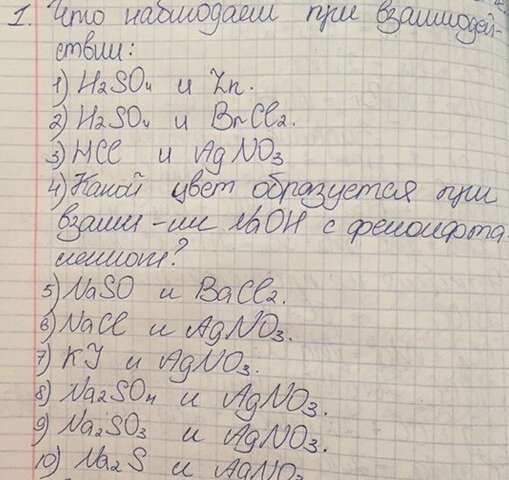 1. Что наблюдаем при взаимодей-
ствии:
1) H2SO4 и Zn.
2) H2SO4 и BrCl2.
3) HCl и AgNO3
4) Какой цвет образуется при
взаим-ии NaOH с фенолфта
леином?
5) NaSO и BaCl2.
6) NaCl и AgNO3.
7) KJ и AgNO3.
8) Na2SO4 и AgNO3.
9) Na2SO3 и AgNO3.
10) Na2S и AgNO3